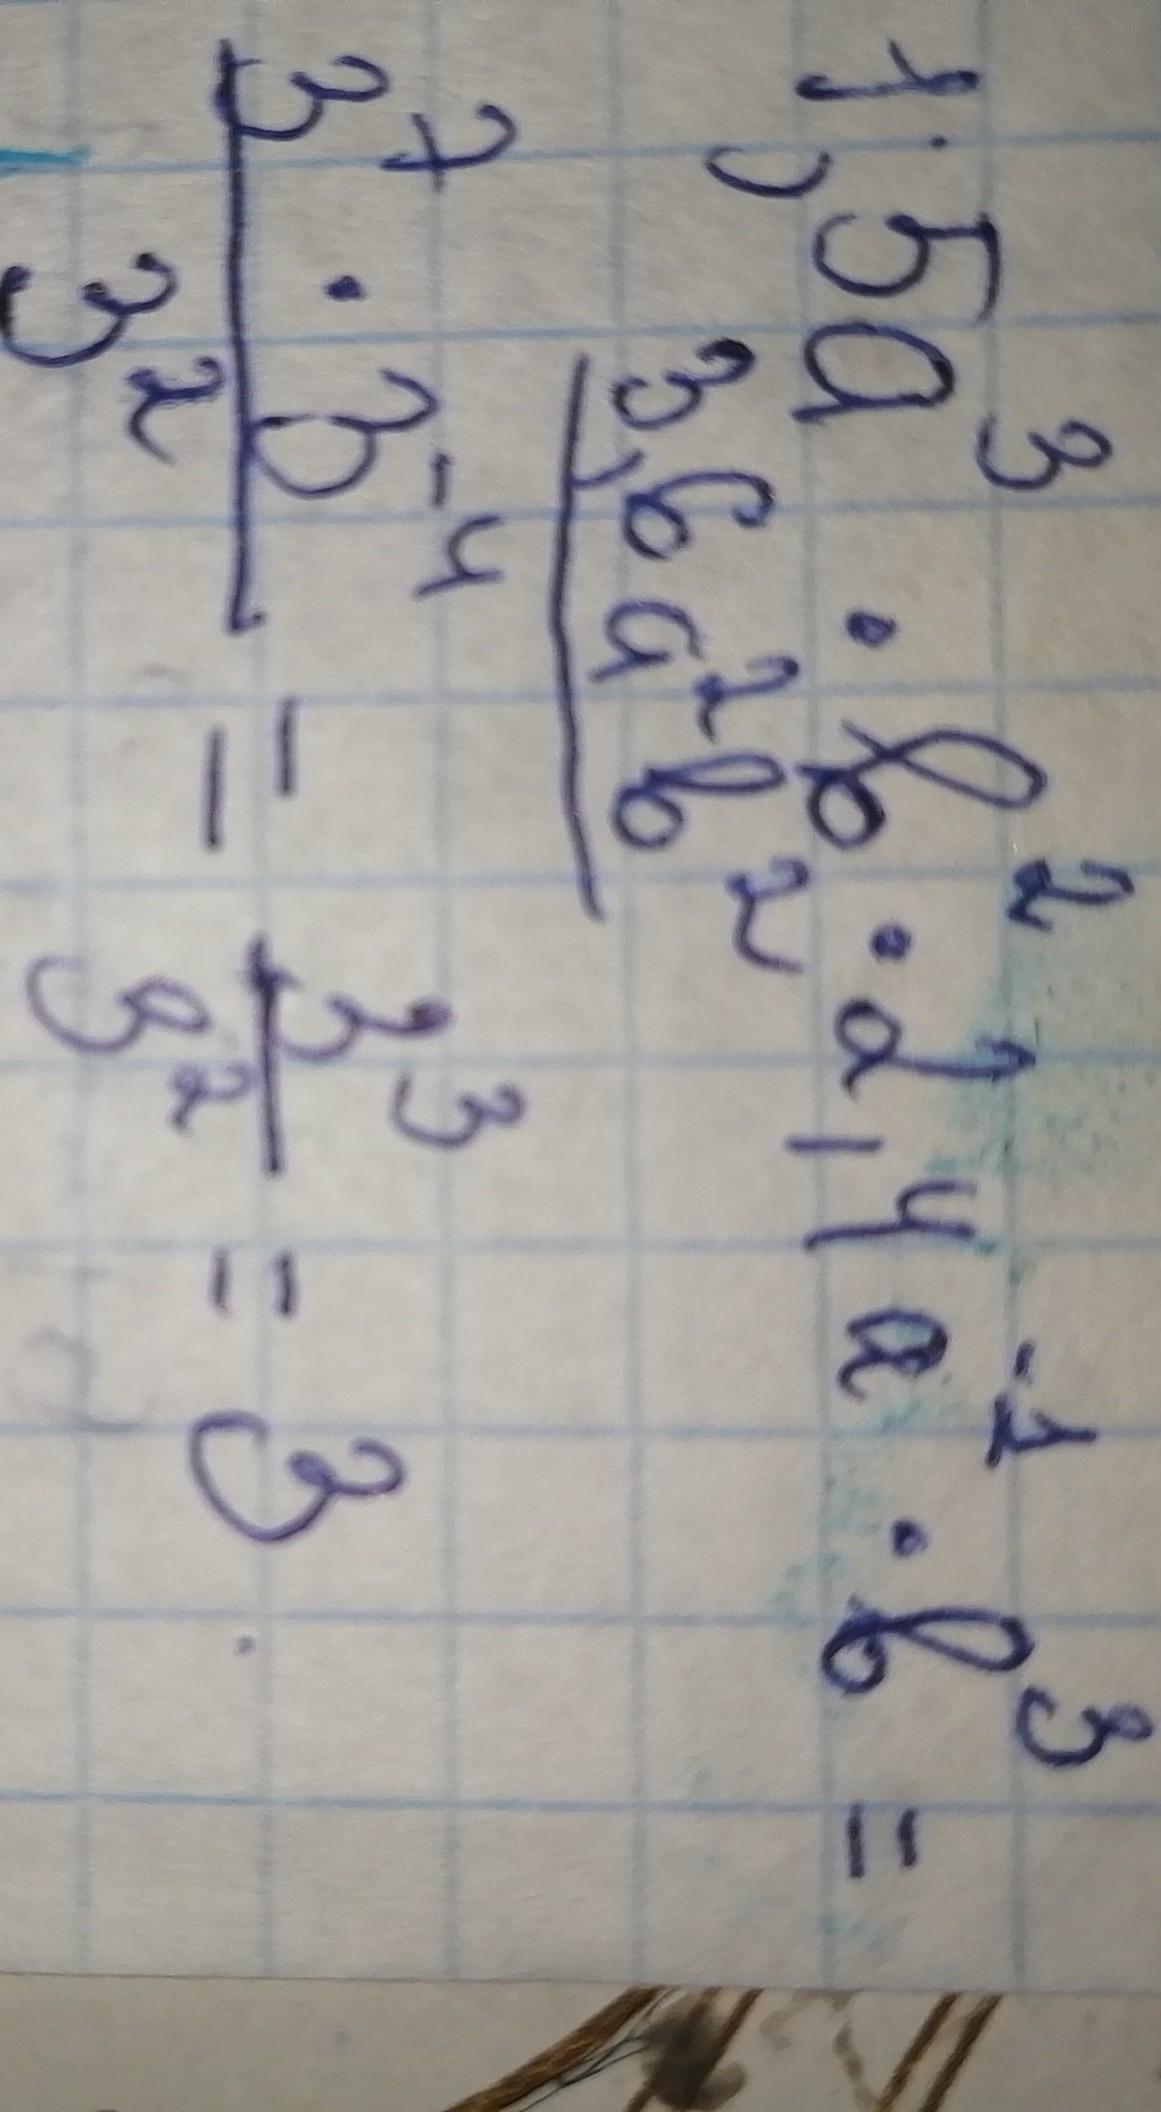 1,5a³ · b² · 2,4a⁻¹ · b³ =
3,6a²b²
3⁷ · 3⁻⁴ / 3² = 3³ / 3² = 3